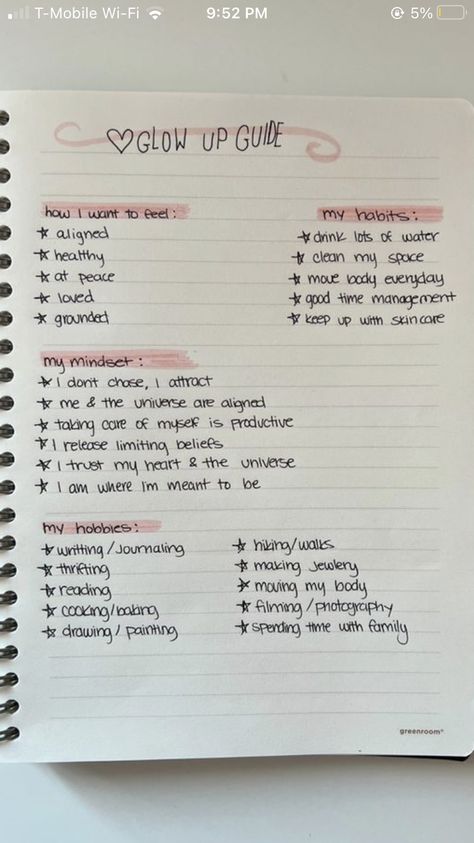 T-Mobile Wi-Fi 9:52 PM 5%
♡GLOW UP GUIDE
how I want to feel:
☆ aligned
☆ healthy
☆ at peace
☆ loved
☆ grounded
my habits:
☆ drink lots of water
☆ clean my space
☆ move body everyday
☆ good time management
☆ keep up with skincare
my mindset:
☆ I don't chase, I attract
☆ me & the universe are aligned
☆ taking care of myself is productive
☆ I release limiting beliefs
☆ I trust my heart & the universe
☆ I am where I'm meant to be
my hobbies:
☆ writting/journaling
☆ thrifting
☆ reading
☆ cooking/baking
☆ drawing/painting
☆ hiking/walks
☆ making jewlery
☆ moving my body
☆ filming/photography
☆ spending time with family
greenroom®